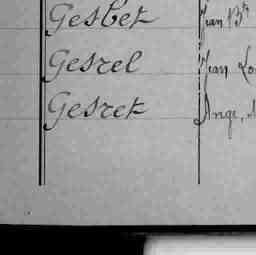 Gesbet Jean Bte
Gesrel Jean Lo
Gesret Ange,